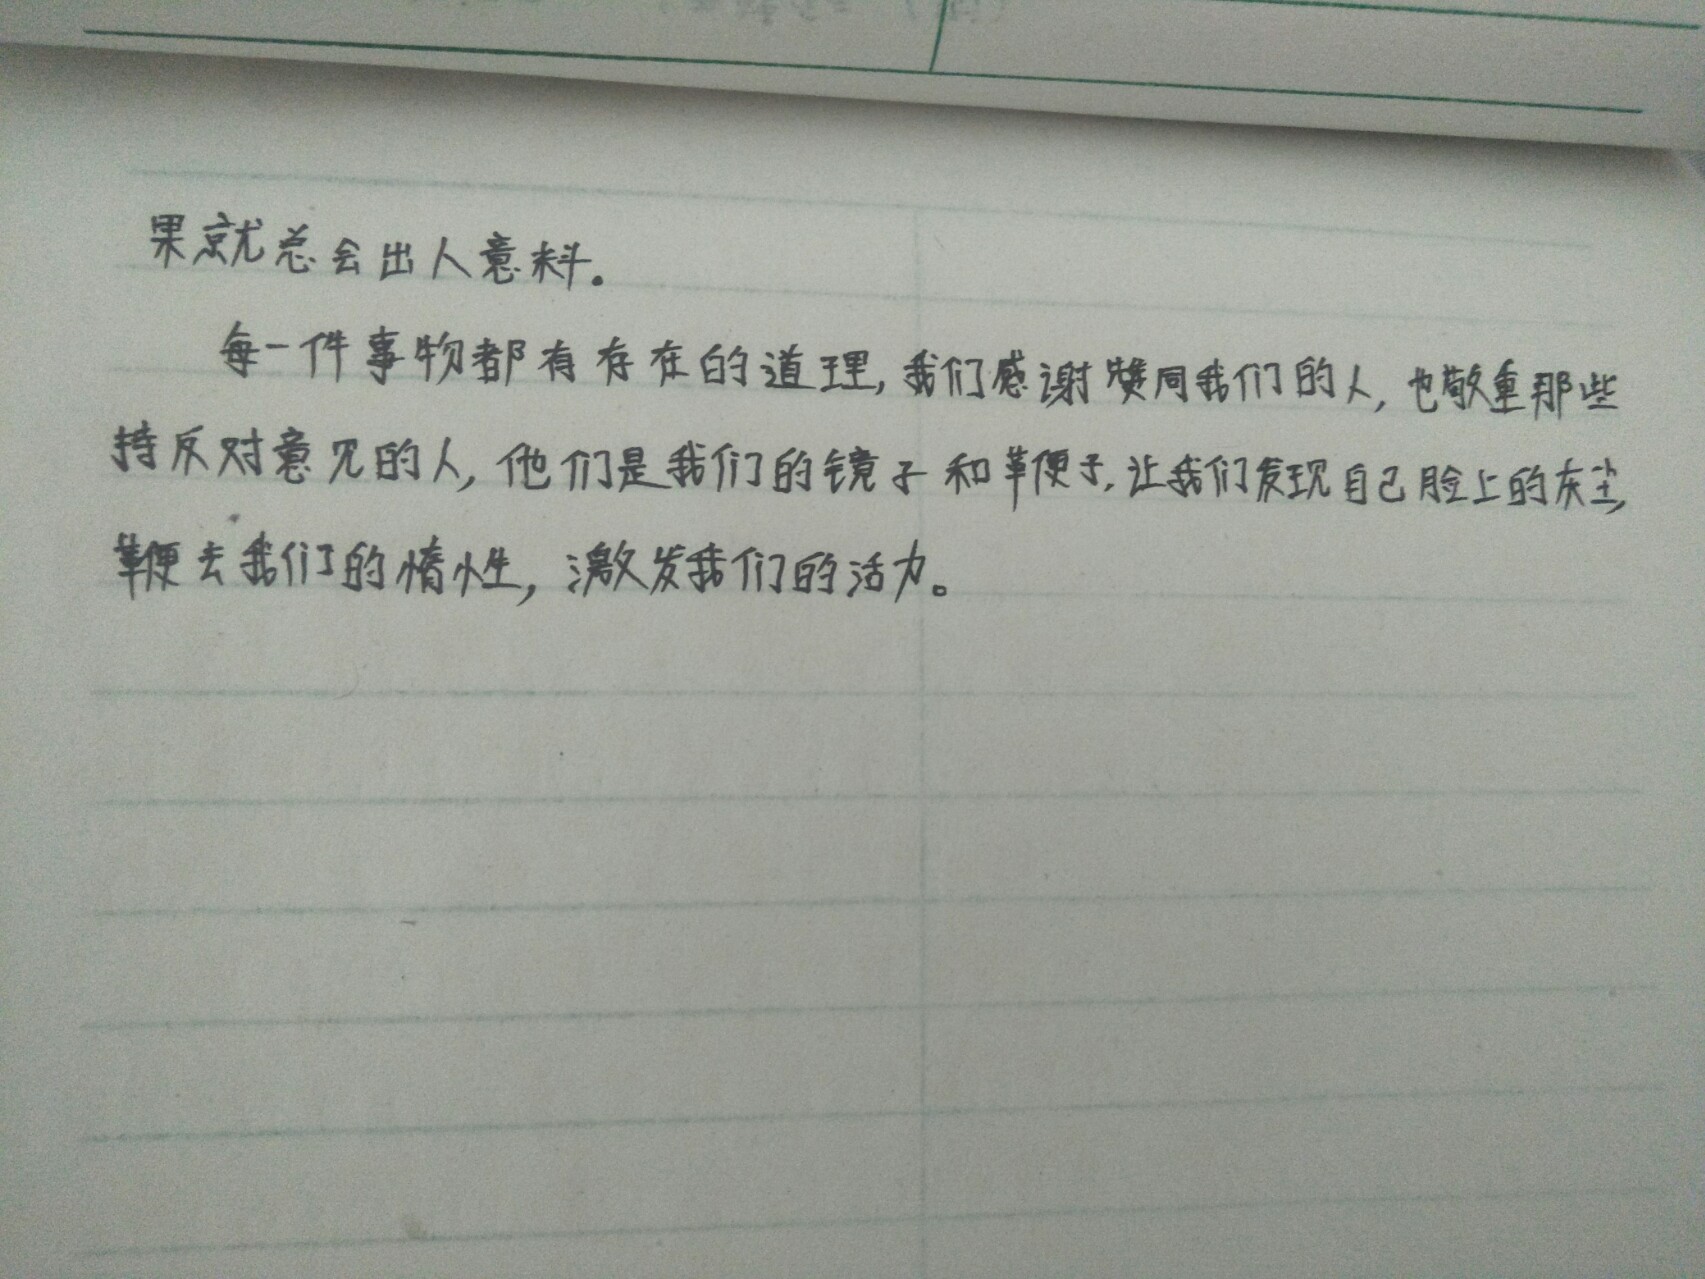 果就总会出人意料。
每一件事物都有存在的道理,我们感谢赞同我们的人,也敬重那些
持反对意见的人,他们是我们的镜子和鞭子,让我们发现自己脸上的灰尘,
鞭去我们的惰性,激发我们的活力。